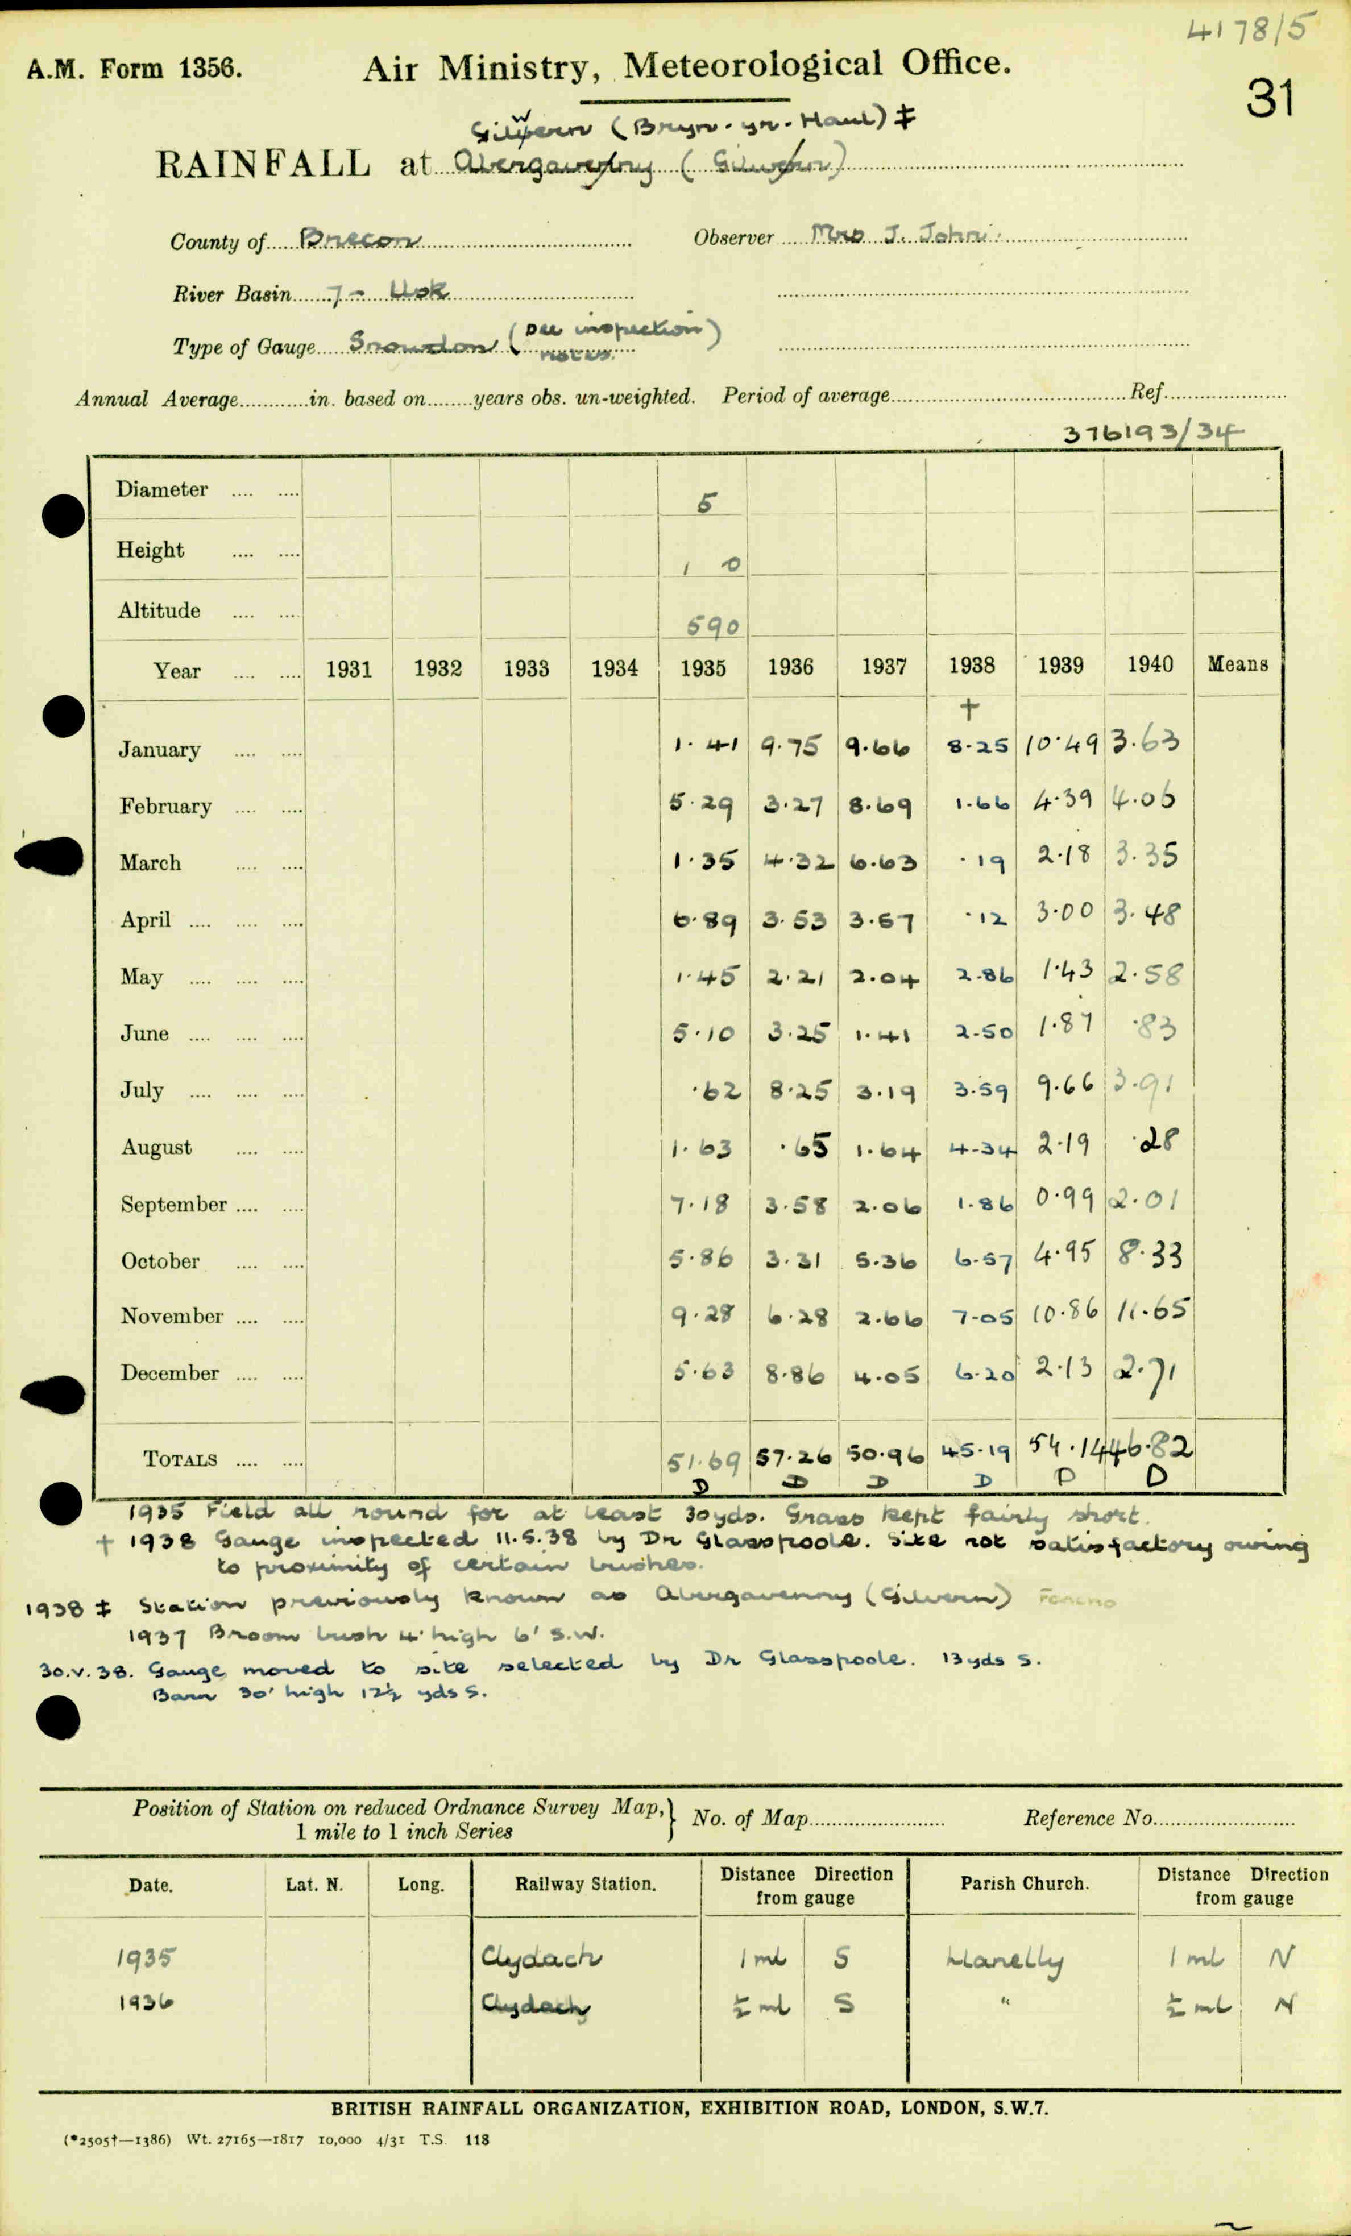 4178/5
A.M. Form 1356. Air Ministry, Meteorological Office.
31
Gilwern (Bryn-yr-Haul) ‡
RAINFALL at Abergavenny (Gilwern)
County of Brecon Observer Mrs J. John
River Basin 7 - Usk
Type of Gauge Snowdon (see inspection notes)
Annual Average in. based on years obs. un-weighted. Period of average Ref.
376193/34
Diameter 5
Height 1 0
Altitude 590
Year 1931 1932 1933 1934 1935 1936 1937 1938 1939 1940 Means
†
January 1.41 9.75 9.66 8.25 10.49 3.63
February 5.29 3.27 8.69 1.66 4.39 4.06
March 1.35 4.32 6.63 .19 2.18 3.35
April 6.89 3.53 3.57 .12 3.00 3.48
May 1.45 2.21 2.04 2.86 1.43 2.58
June 5.10 3.25 1.41 2.50 1.87 .83
July .62 8.25 3.19 3.59 9.66 3.91
August 1.63 .65 1.64 4.34 2.19 .28
September 7.18 3.58 2.06 1.86 0.99 2.01
October 5.86 3.31 5.36 6.57 4.95 8.33
November 9.28 6.28 2.66 7.05 10.86 11.65
December 5.63 8.86 4.05 6.20 2.13 2.71
TOTALS 51.69 57.26 50.96 45.19 54.14 46.82
D D D D D D
1935 Field all round for at least 30yds. Grass kept fairly short.
† 1938 Gauge inspected 11.5.38 by Dr Glasspoole. Site not satisfactory owing
to proximity of certain bushes.
1938 ‡ Station previously known as Abergavenny (Gilwern)
1937 Broom bush 4' high 6' S.W.
30.V.38. Gauge moved to site selected by Dr Glasspoole. 13yds S.
Barn 30' high 12½ yds S.
Position of Station on reduced Ordnance Survey Map, 1 mile to 1 inch Series } No. of Map Reference No.
Date. Lat. N. Long. Railway Station. Distance Direction from gauge Parish Church. Distance Direction from gauge
1935 Clydach 1 ml S Llanelly 1 ml N
1936 Clydach ½ ml S " ½ ml N
BRITISH RAINFALL ORGANIZATION, EXHIBITION ROAD, LONDON, S.W.7.
(*2505†—1386) Wt. 27165—1817 10,000 4/31 T.S. 118